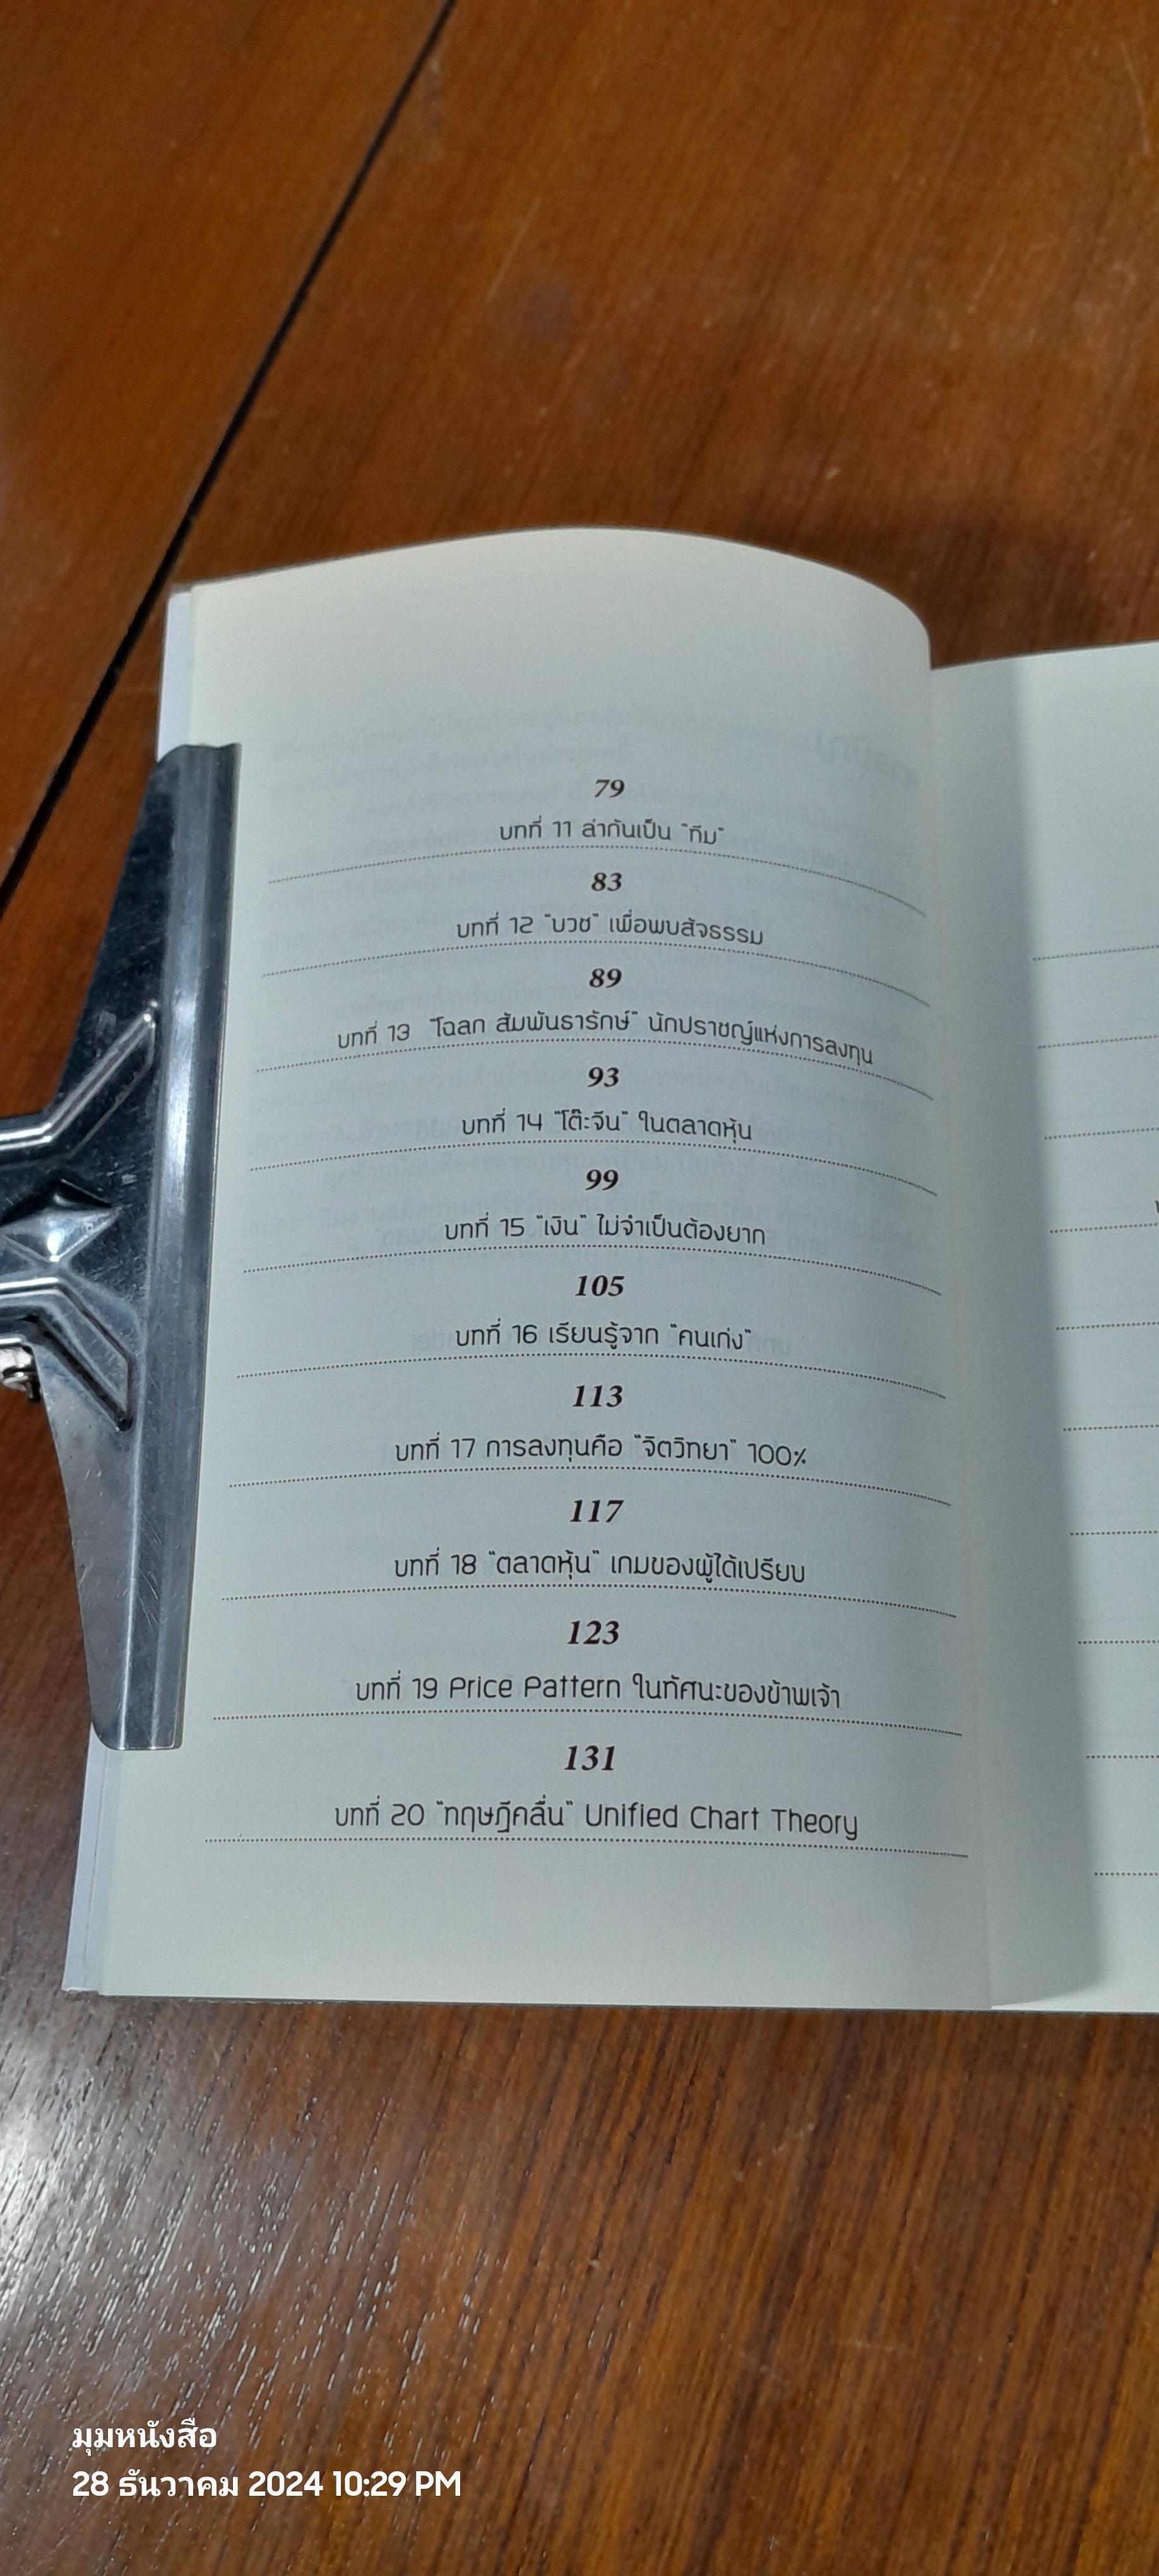 79
บทที่ 11 ล่ากันเป็น "ทีม"
83
บทที่ 12 "บวช" เพื่อพบสัจธรรม
89
บทที่ 13 "โฉลก สัมพันธารักษ์" นักปราชญ์แห่งการลงทุน
93
บทที่ 14 "โต๊ะจีน" ในตลาดหุ้น
99
บทที่ 15 "เงิน" ไม่จำเป็นต้องยาก
105
บทที่ 16 เรียนรู้จาก "คนเก่ง"
113
บทที่ 17 การลงทุนคือ "จิตวิทยา" 100%
117
บทที่ 18 "ตลาดหุ้น" เกมของผู้ได้เปรียบ
123
บทที่ 19 Price Pattern ในทัศนะของข้าพเจ้า
131
บทที่ 20 "ทฤษฎีคลื่น" Unified Chart Theory
มุมหนังสือ
28 ธันวาคม 2024 10:29 PM